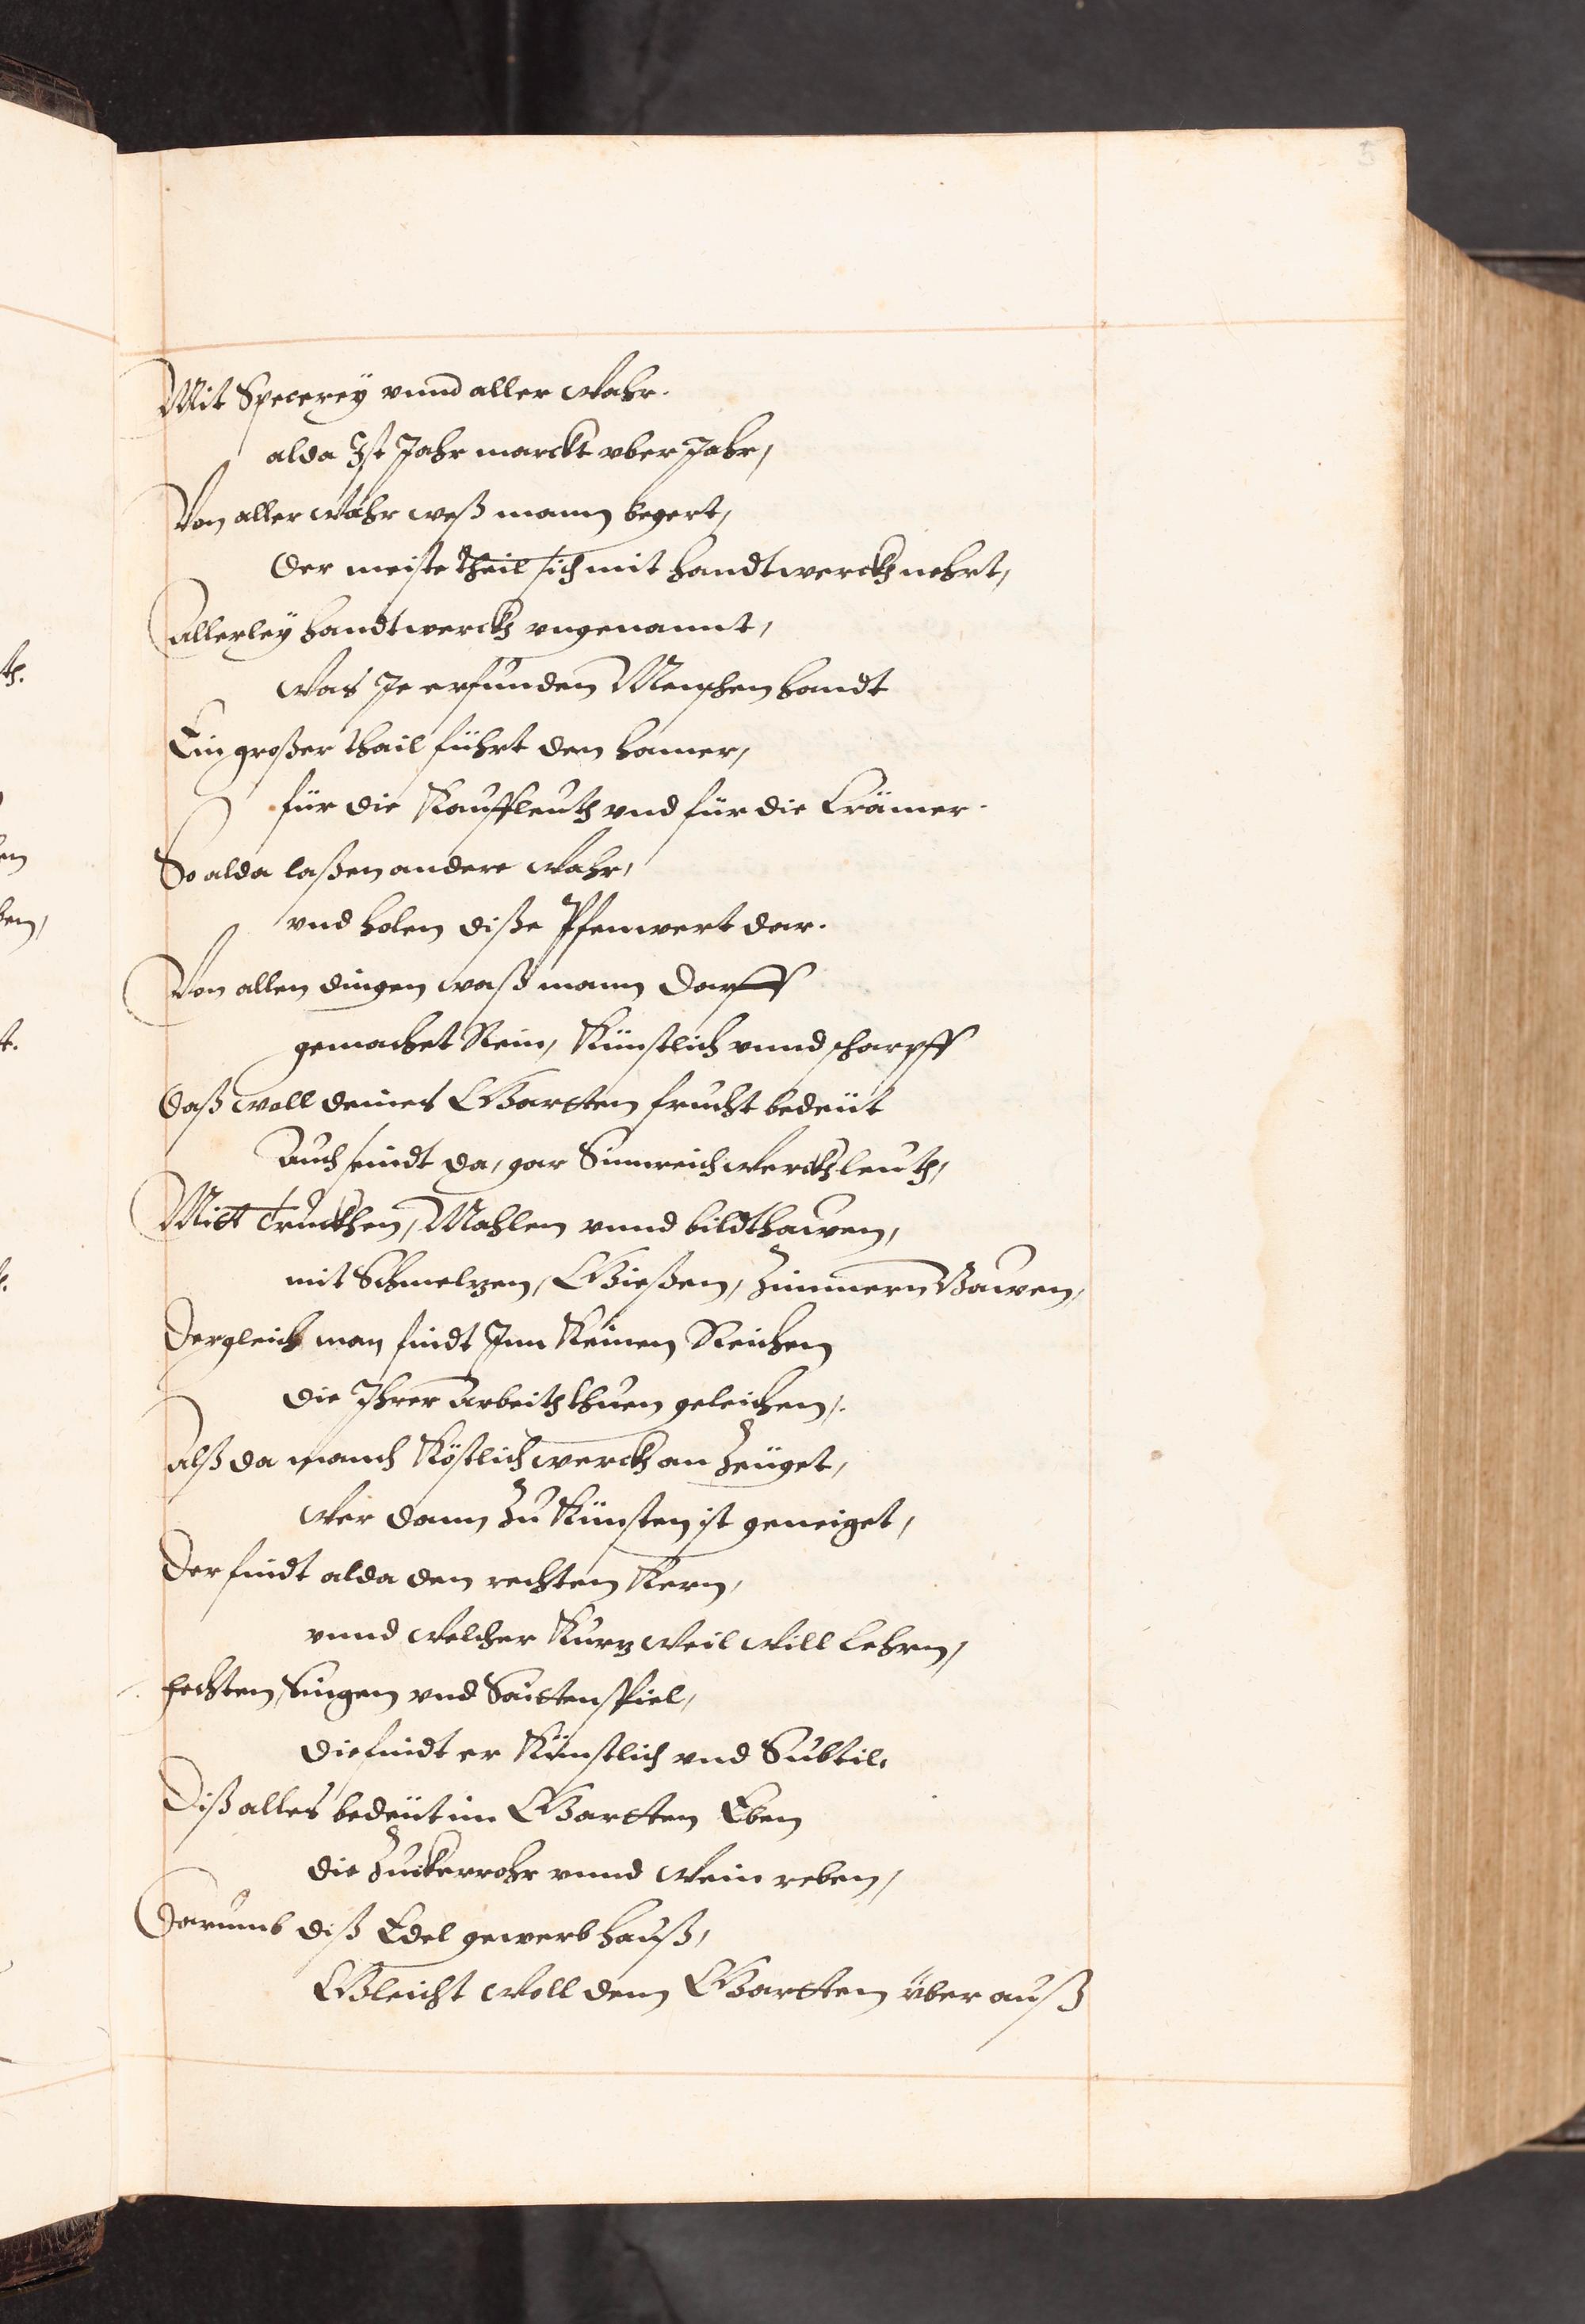 5
Mit Specerey vnnd aller Wahr.
alda Ist Jahr marckt vber Jahr,
Von aller Wahr weß mann begert,
Der meiste theil sich mit handtwerckh nehrt,
Allerley handtwerckh vngenannt,
Was Je erfunden Menschen handt
Ein großer thail führt den hamer,
für die Kauffleuth vnd für die Crämer.
So alda laßen andere Wahr,
vnd holen diße Pfenwert dar.
Von allen dingen waß mann darff
gemachet Rein, Künstlich vnnd scharpff
Daß woll deines Gartten frucht bedeüt
Auch seindt da, gar Sinnreich Werckhleuth,
Mitt Truckhen, Mahlen vnnd bildthawen,
mit Schmelzen, Gießen, Zimmern Bawen,
Dergleich man findt Inn Keinen Reichen
die Ihrer Arbeith thuen geleichen,
Alß da manch Köstlich werckh an Zeüget,
Wer dann Zu Künsten ist geneiget,
Der findt alda den rechten Kern,
vnnd Welcher Kurz Weil Will Lehrn,
fechten, Singen vnd Saittenspiel,
die findt er Künstlich vnd Subtil.
Diß alles bedeüt im Gartten Eben
die Zuckerrohr vnnd Wein reben,
Darumb diß Edel gewerb hauß,
Gleicht Woll dem Gartten über auß